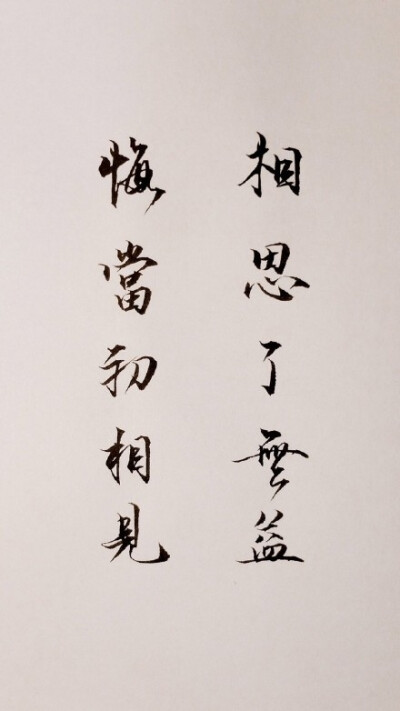 相思了無益
悔當初相見